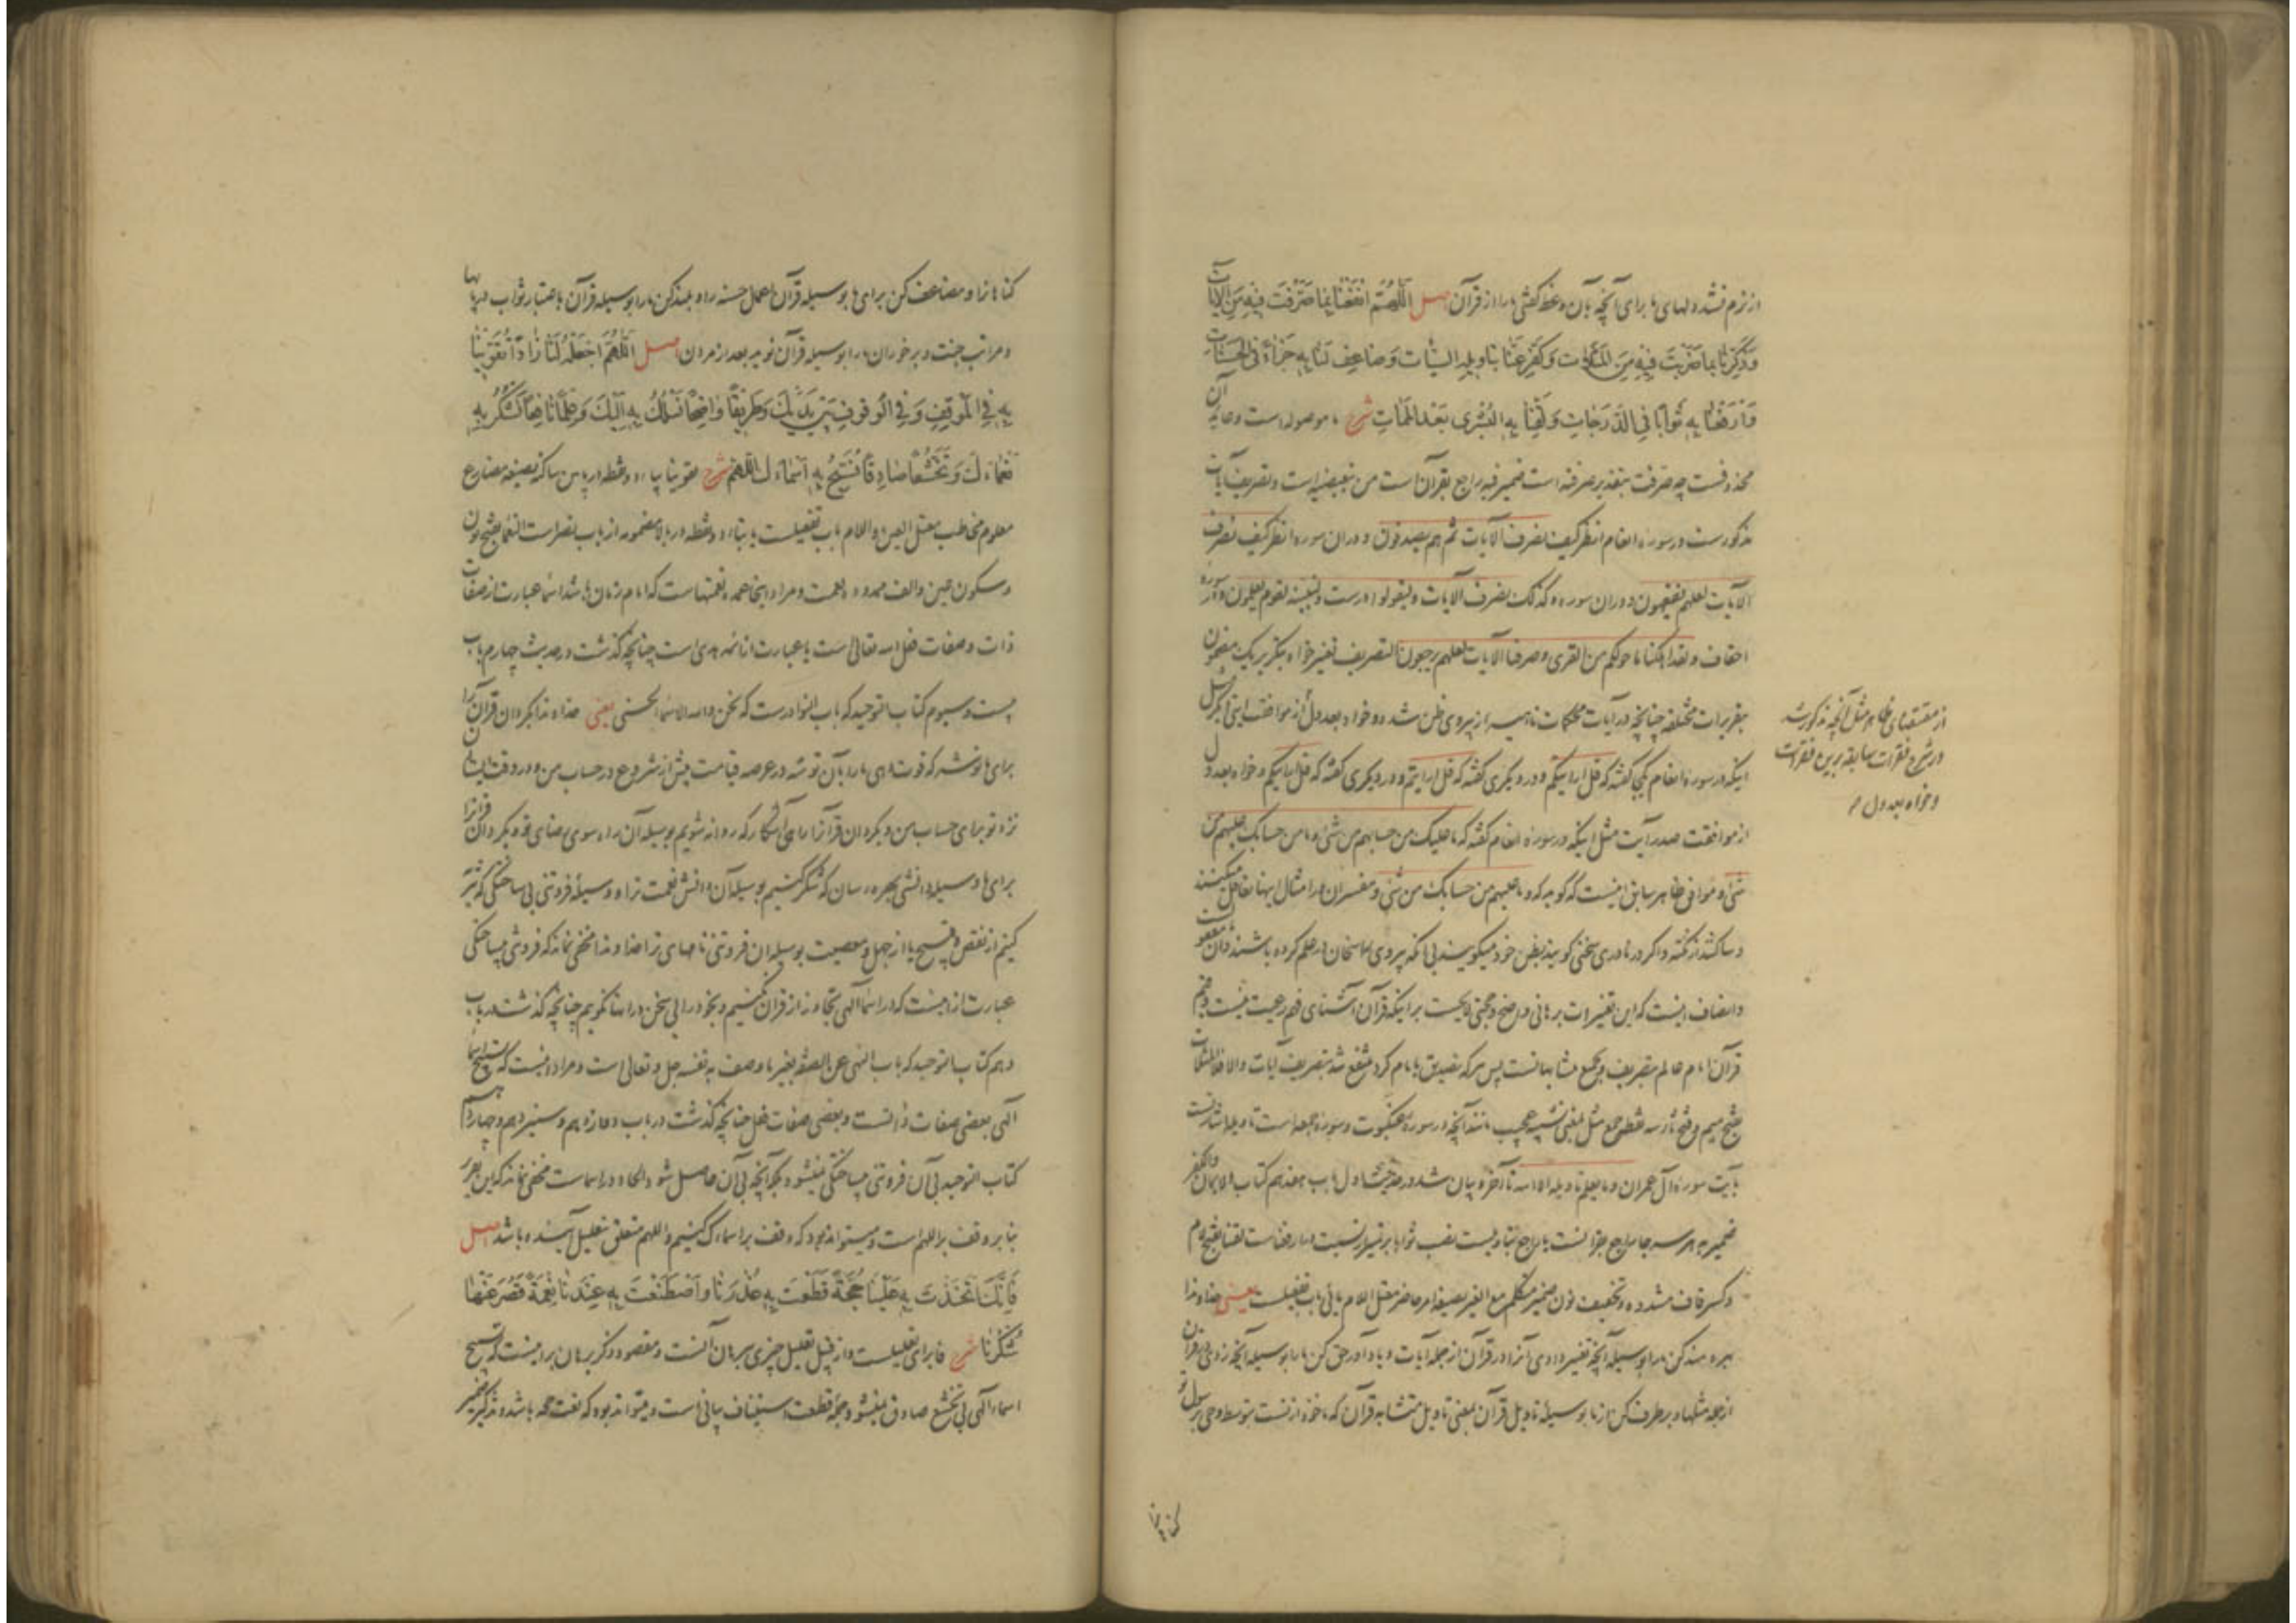 از نرم نشدن دلهای ما برای آنچه بآن وعظ گفتی ما را از قرآن اصل اَللّهُمَّ انْفَعْنا بِما صَرَّفْتَ فیهِ مِنَ الْآیاتِ
وَذَکِّرْنا بِما ضَرَبْتَ فیهِ مِنَ الْمَثُلاتِ وَکَفِّرْ عَنّا بِتَاویلِهِ السَّیِّئاتِ وَضاعِفْ لَنا بِهِ جَزاءً فِی الْحَسَناتِ
وَارْفَعْنا بِهِ ثَواباً فِی الدَّرَجاتِ وَلَقِّنا بِهِ الْبُشْری بَعْدَ الْمَماتِ شرح ما موصوله است و عاید آن
محذوفست چه صرفت بتقدیر صرفته است ضمیر فیه راجع بقرآن است من تبعیضیه است و تصریف آیات
مذکورست در سوره انعام انظر کیف نصرف الآیات ثم هم یصدفون و در آن سوره انظر کیف نصرف
الآیات لعلهم یفقهون و در آن سوره و کذلک نصرف الآیات و لیقولوا درست و لنبینه لقوم یعلمون و در سوره
احقاف و لقد اهلکنا ما حولکم من القری و صرفنا الآیات لعلهم یرجعون التصریف تغییر خواه بتکریر یک مضمون
بتقریرات مختلفه چنانچه در آیات محکمات ناهیه از پیروی ظن شده و خواه بعدول از موافقت
اینکه در سوره انعام یکجا گفته که قل ارایتکم و در دیگری گفته که قل ارایتم و در دیگری گفته که قل ارایتکم و خواه بعدول
از موافقت صدر آیت مثل اینکه در سوره انعام گفته که ما علیک من حسابهم من شئ و ما من حسابک علیهم من
شئ و موافق ظاهر سابق اینست که گوید که و ما علیهم من حسابک من شئ و مفسران در امثال اینها تغافل میکنند
و ساکتند از نکته و اگر در نادری سخنی گویند بظن خود میگویند بی آنکه پیروی
و انصاف اینست که این تغییرات برهانی واضح و حجتی لایحست بر اینکه قرآن آشنای فهم رعیت نیست و فهم
قرآن امام عالم بتصریف و بجمیع متشابهاتست پس هر که تصدیق با امام کرد منتفع شد بتصریف آیات و الا فلا المثلات
بفتح میم و ضم ثاء سه نقطه جمع مثل بمعنی تشبیه عجیب مانند آنچه در سوره عنکبوت و سوره جمعه است تاویله اشارتست
بآیت سوره آل عمران و ما یعلم تاویله الا الله تا آخر و بیان شد در حدیث اول باب هفدهم کتاب الایمان و الکفر
ضمیر به هر سه جا راجع بقرآنست یا راجع بتاویلست نصب ثوابا بر تمییز نسبت در ارفعناست لقنا بفتح لام
و کسر قاف مشدده و تخفیف نون ضمیر متکلم مع الغیر بصیغه امر حاضر معتل اللام یائی باب تفعیلست یعنی خداوندا
بهره مند کن ما را بوسیله آنچه تغییر دادی آنرا در قرآن از جمله آیات و بیاد آور حق کن ما را بوسیله آنچه زدی در قرآن
از جمله مثلها و برطرف کن از ما بوسیله تاویل قرآن بمعنی تاویل متشابه قرآن که ماخوذ از تست بتوسط وحی بر رسول تو
از مقتضای ظاهر مثل آنچه مذکور شد
در شرح فقرات سابقه برین فقرات
و خواه بعدول
گناهان
گناهانرا و مضاعف کن برای ما بوسیله قرآن اعمال حسنه را و بلند کن ما را بوسیله قرآن باعتبار ثواب در پایها
و مراتب جنت و برخوران ما را بوسیله قرآن نوید بعد از مردن اصل اَللّهُمَّ اجْعَلْهُ لَنا زاداً تُقَوّینا
بِهِ فِی الْمَوْقِفِ وَفِی الْوُقُوفِ بَیْنَ یَدَیْکَ وَطَریقاً واضِحاً نَسْلُکُ بِهِ اِلَیْکَ وَعِلْماً نافِعاً نَشْکُرُ بِهِ
نَعْماءَکَ وَتَخَشُّعاً صادِقاً نُسَبِّحُ بِهِ اَسْماءَکَ اللّهُمَّ شرح تقوینا بیاء دو نقطه در پایین ساکنه بصیغه مضارع
معلوم مخاطب معتل العین و اللام باب تفعیلست یا بتاء دو نقطه در بالا مضمومه از باب نصر است النعماء بفتح نون
و سکون عین و الف ممدوده نعمت و مراد اینجا عمده نعمتهاست که امام زمان باشد اسما عبارت از صفات
ذات و صفات فعل الله تعالی است یا عبارت از ائمه هدی است چنانچه گذشت در حدیث چهارم باب
بیست و سیوم کتاب التوحید که باب النوادرست که نحن والله الاسماء الحسنی یعنی خداوندا بگردان قرآن را
برای ما توشه که قوت دهی ما را بآن توشه در عرصه قیامت پیش از شروع در حساب من و در وقت ایستادن
نزد تو برای حساب من و بگردان قرآنرا راهی آشکار که روانه شویم بوسیله آن راه سوی رضای تو و بگردان قرآنرا
برای ما وسیله دانشی بهره رسان که شکر کنیم بوسیله آن دانش نعمت ترا و وسیله فروتنی بی ساختگی که تنزیه
کنیم از نقص و قبیح یا از جهل و معصیت بوسیله آن فروتنی نامهای ترا خداوندا مخفی نماند که فروتنی بی ساختگی
عبارت از اینست که در اسماء الهی تجاوز از قرآن نکنیم و بخود رایی سخن در آنها نگوییم چنانچه گذشت در باب
دهم کتاب التوحید که باب النهی عن الصفة بغیر ما وصف به نفسه جل و تعالی است و مراد اینست که تسبیح اسماء
الهی بعضی صفات ذاتست و بعضی صفات فعل چنانچه گذشت در باب دوازدهم و سیزدهم و چهاردهم
کتاب التوحید بی آن فروتنی بی ساختگی نمیشود بلکه آنچه بی آن حاصل شود الحاد در اسماست مخفی نماند که این تقریر
بنا بر وقف بر اللهم است و میتواند بود که وقف بر اسماءک کنیم و اللهم متعلق بتعلیل آینده باشد اصل
فَاِنَّکَ اتَّخَذْتَ بِهِ عَلَیْنا حُجَّةً قَطَعْتَ بِهِ عُذْرَنا وَاصْطَنَعْتَ بِهِ عِنْدَنا نِعْمَةً قَصُرَ عَنْها
شُکْرُنا شرح فا برای تعلیلست و از قبیل تعلیل چیزی ببرهان آنست و مقصود ذکر برهان بر اینست که تسبیح
اسماء الهی بی تخشع صادق نمیشود و جمله قطعت استیناف بیانی است و میتواند بود که نعت حجة باشد و تذکیر ضمیر